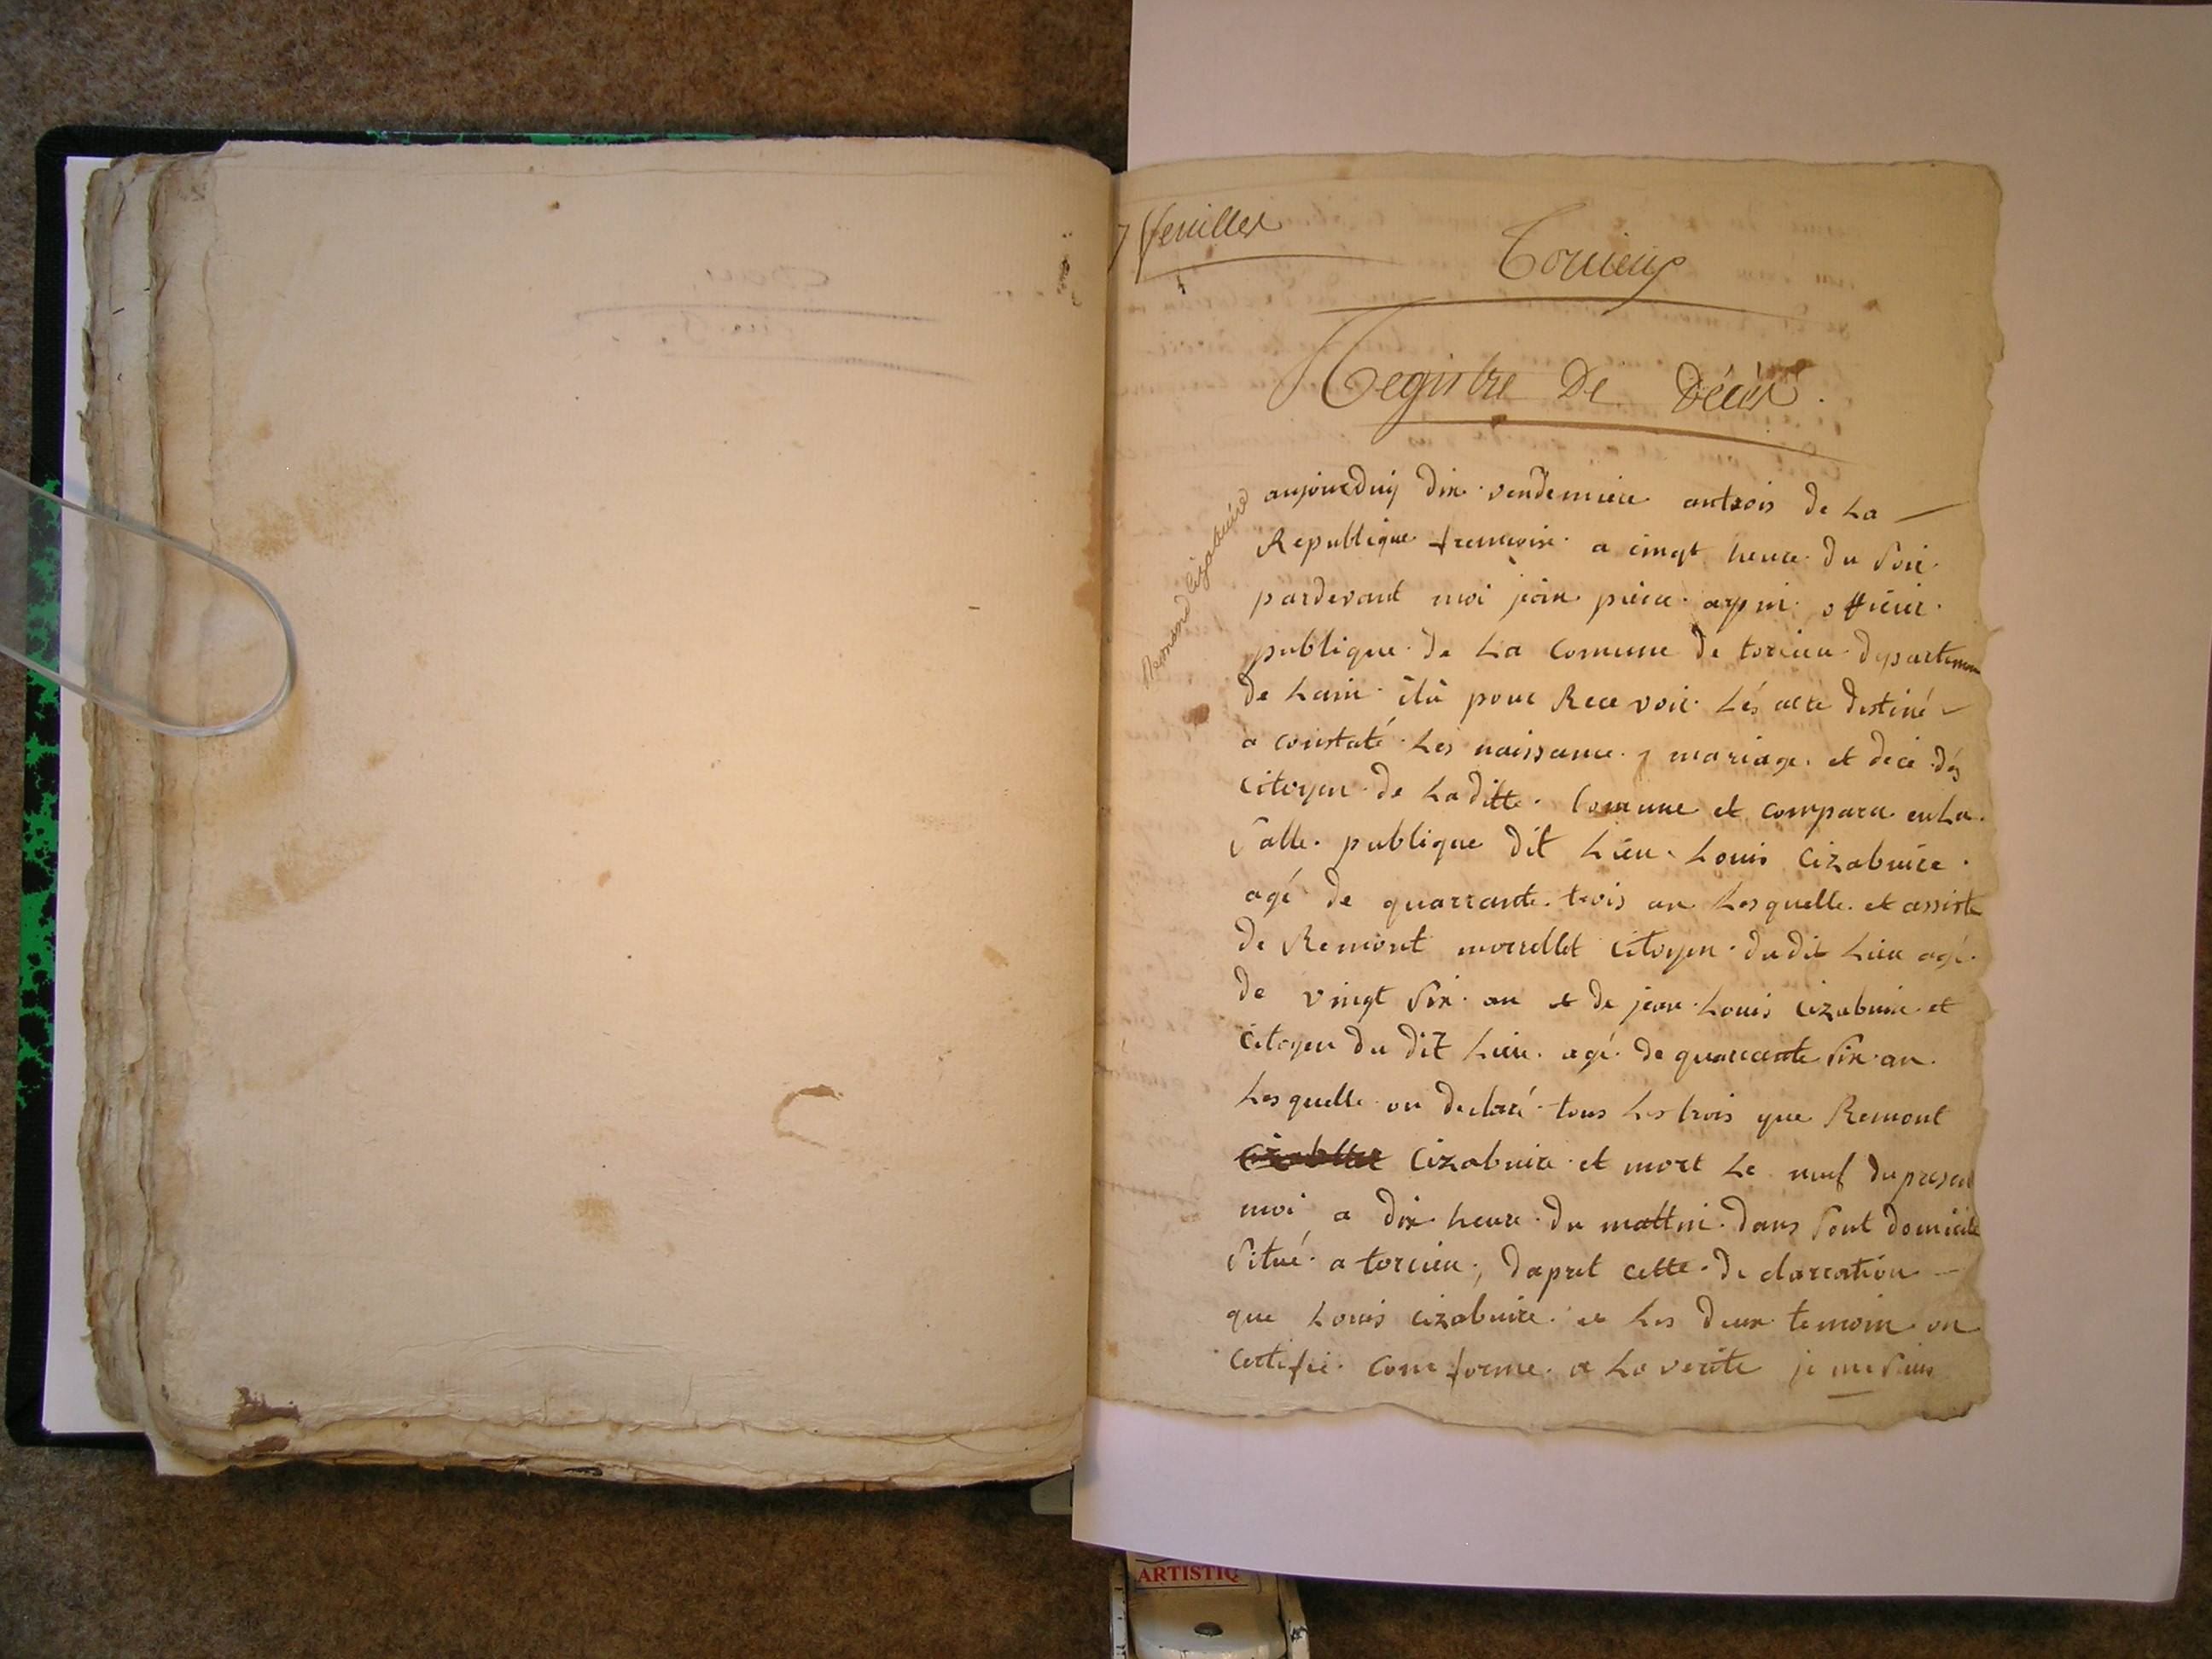 7 feuilles
Torcieux
Registre De Décès.
Remond Cizabuire
aujourduij dix vendemiere antrois de La
Republique francoise a cinqt heure du soir
pardevant moi jean piere arpin officier
publique de La Comune de torcieu departement
de Lain élu pour Recevoir Lés acte destiné
a constaté Les naissance, mariage et décé dés
Citoyen de La ditte Comune et compara en La
salle publique dit Lieu Louis Cizabuire
agé de quarrante trois an Lesquelle et assisté
de Remont morrellet Citoyen du dit Lieu agé
de vingt six an et de jean Louis Cizabuire et
Citoyen du dit Lieu agé de quarrante six an
Lesquelle on declaré tous Les trois que Remont
Cizabuire et mort Le neuf du present
moi a dix heure du mattin dans sont domicile
situé a torcieu, dapret cette declarration
que Louis Cizabuire et Les deux temoin on
Certifié comforme a La verité je me suis
ARTISTIQ